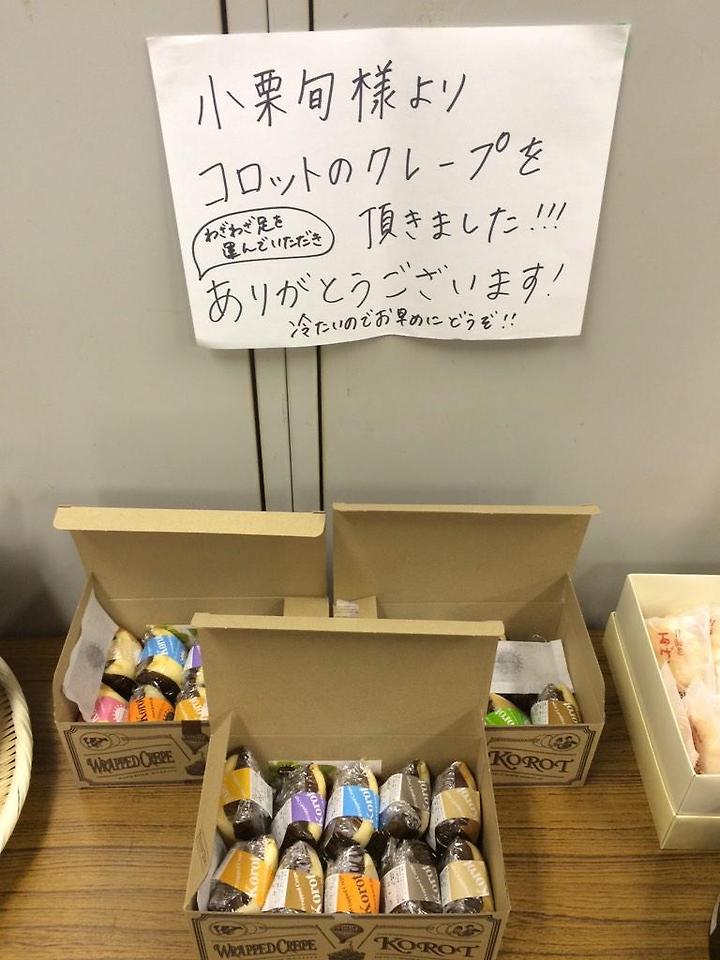 小栗旬様より
コロットのクレープを
わざわざ足を
運んでいただき
頂きました!!!
ありがとうございます!
冷たいのでお早めにどうぞ!!
WRAPPED CREPE
KOROT
Korot
Korot
Korot
Korot
Korot
Korot
WRAPPED CREPE
KOROT